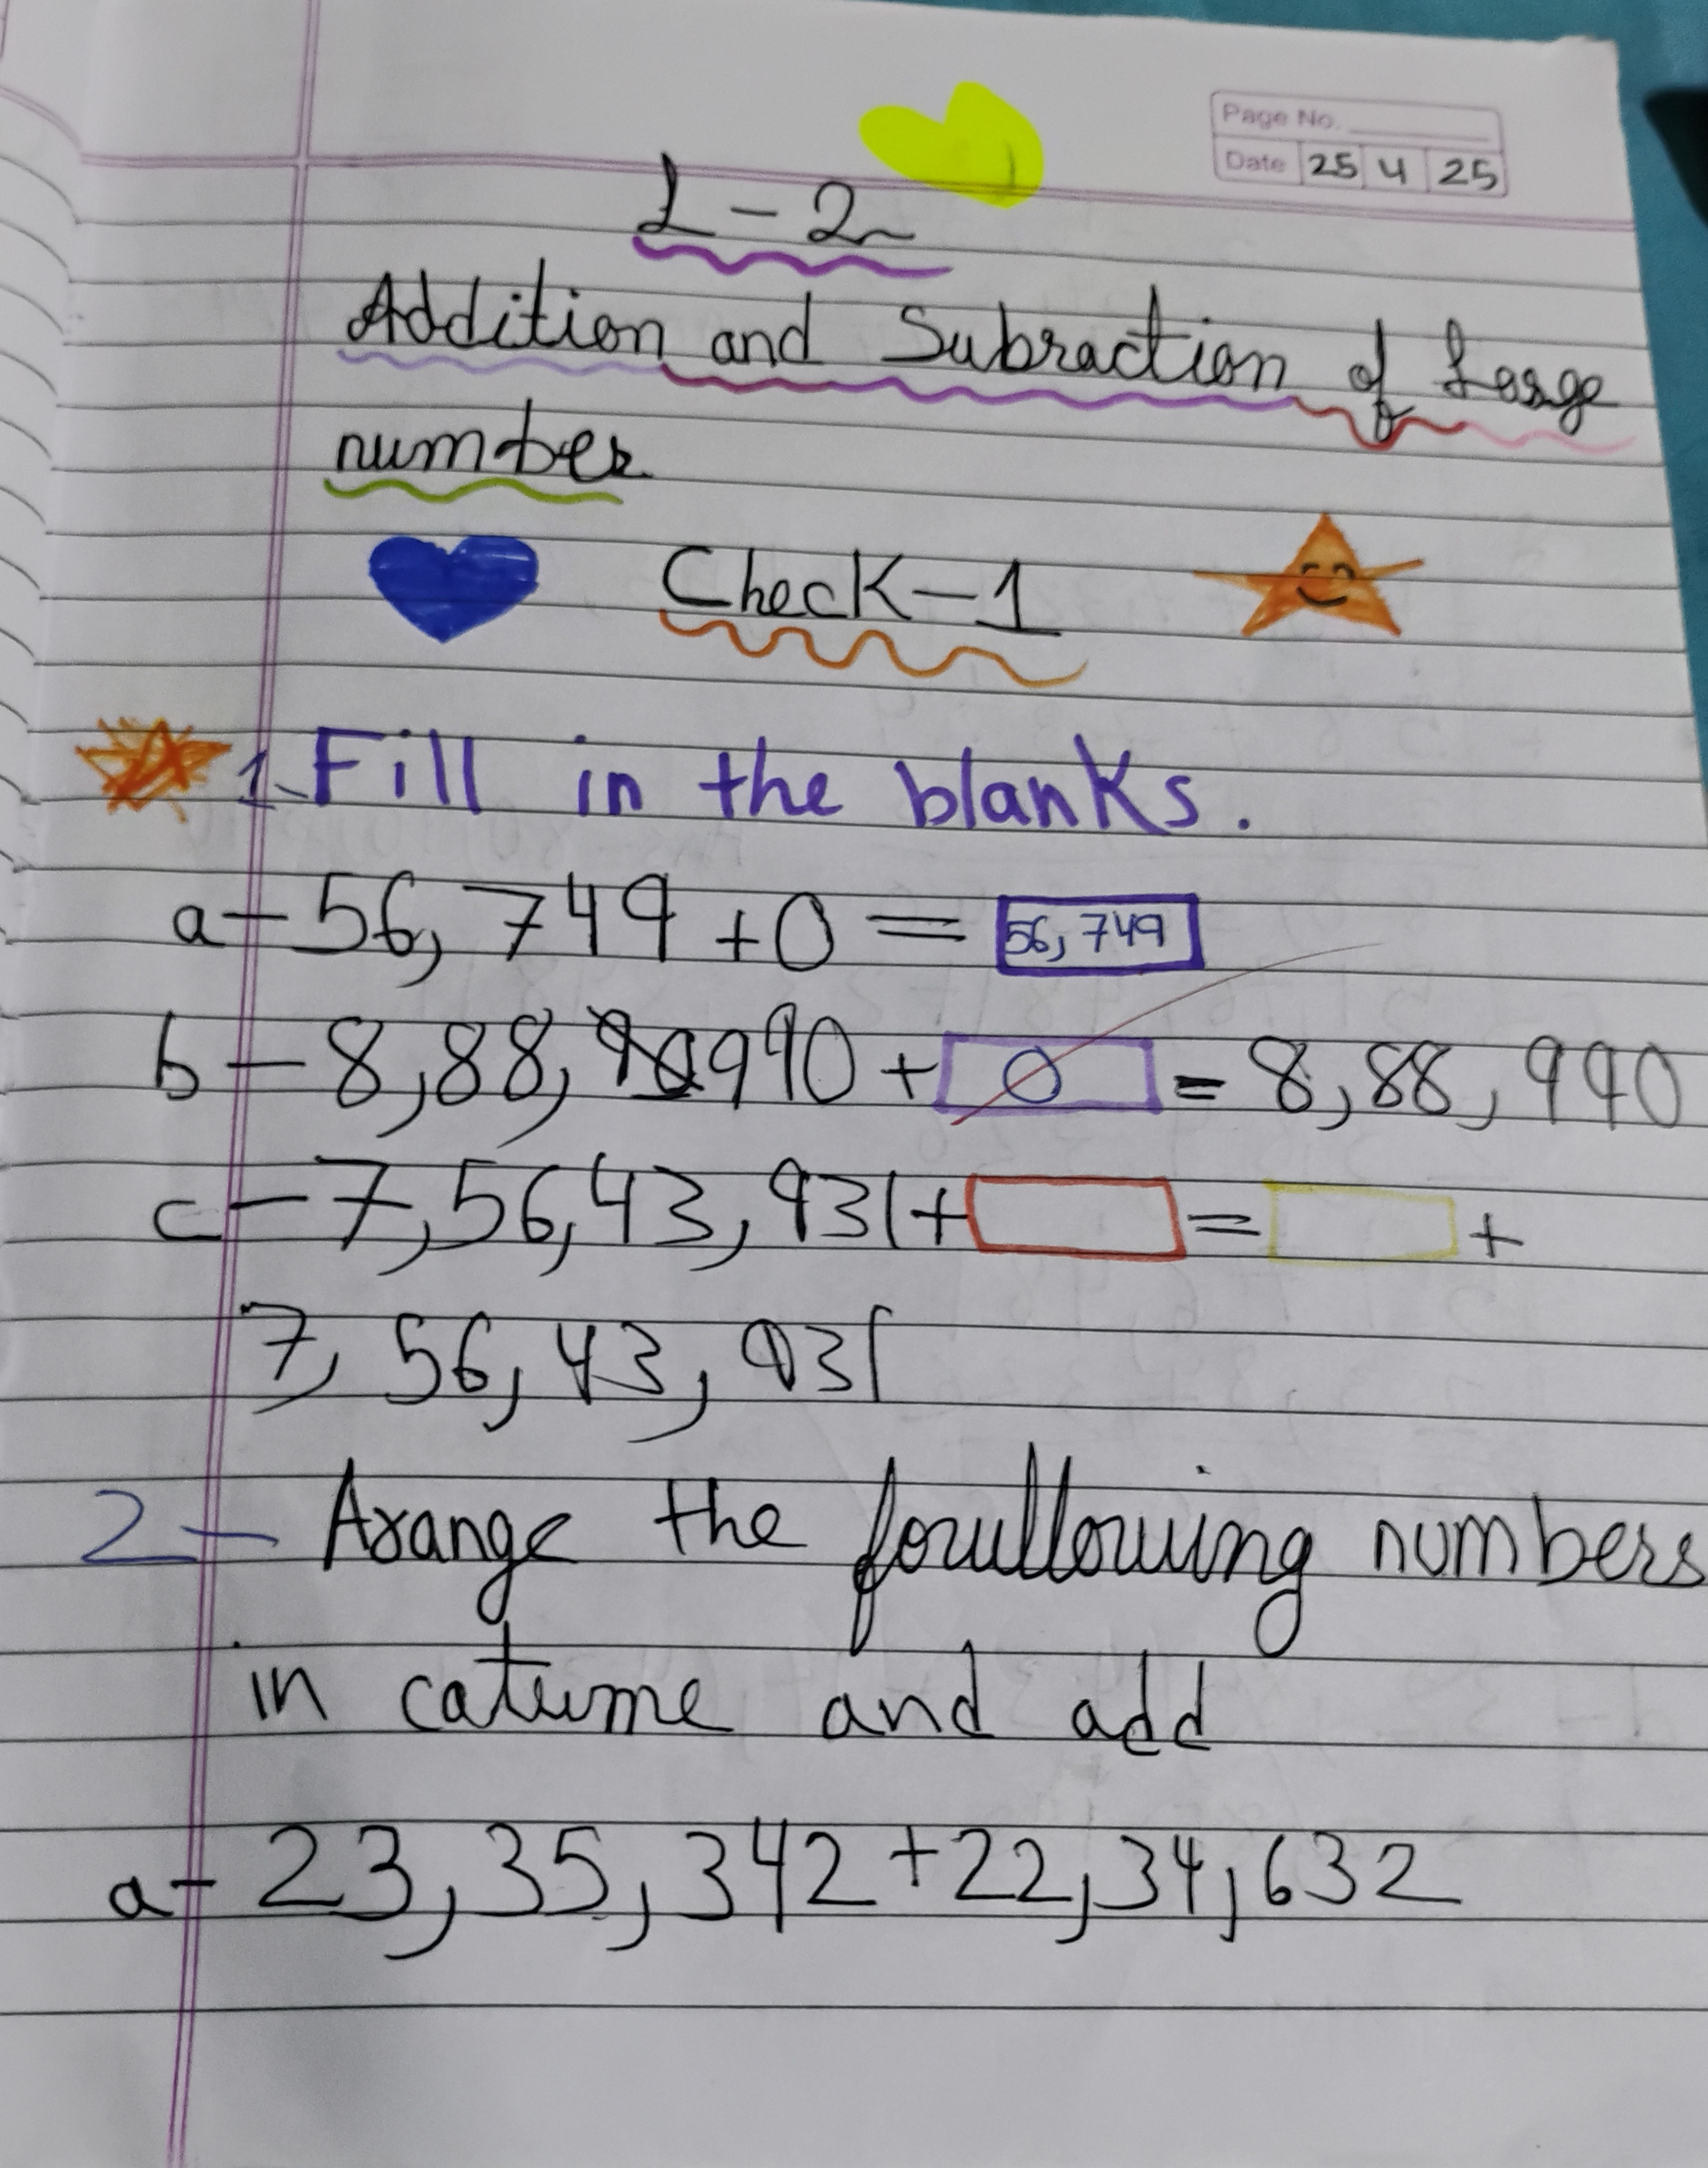 Page No.
Date 25 4 25
L-2
Addition and Subraction of Large
number
Check-1
1. Fill in the blanks.
a- 56,749 +0 = 56,749
b- 8,88, 990 + 0 = 8,88,990
c- 7,56,43,931+ = +
7,56,43,931
2- Arange the foullowing numbers
in catume and add
a- 23,35,342+22,34,632